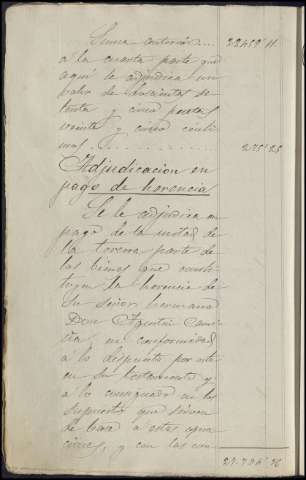 Suma anterior.... 22459 11
á la cuarta parte que
aquí le adjudica un
valor de doscientas se-
tenta y cinco pesetas
veinte y cinco centi-
mos. . . . . . . . . . . . 275'25
Adjudicacion en
pago de herencia
Se le adjudica en
pago de la mitad de
la tercera parte de
los bienes que consti-
tuyen la herencia de
Su Señor hermano
Don Agustin
en conformidad
á lo dispuesto por este
en su testamento y
á lo consignado en los
Supuestos que sirven
de base á estas opera-
ciones, y con las con-